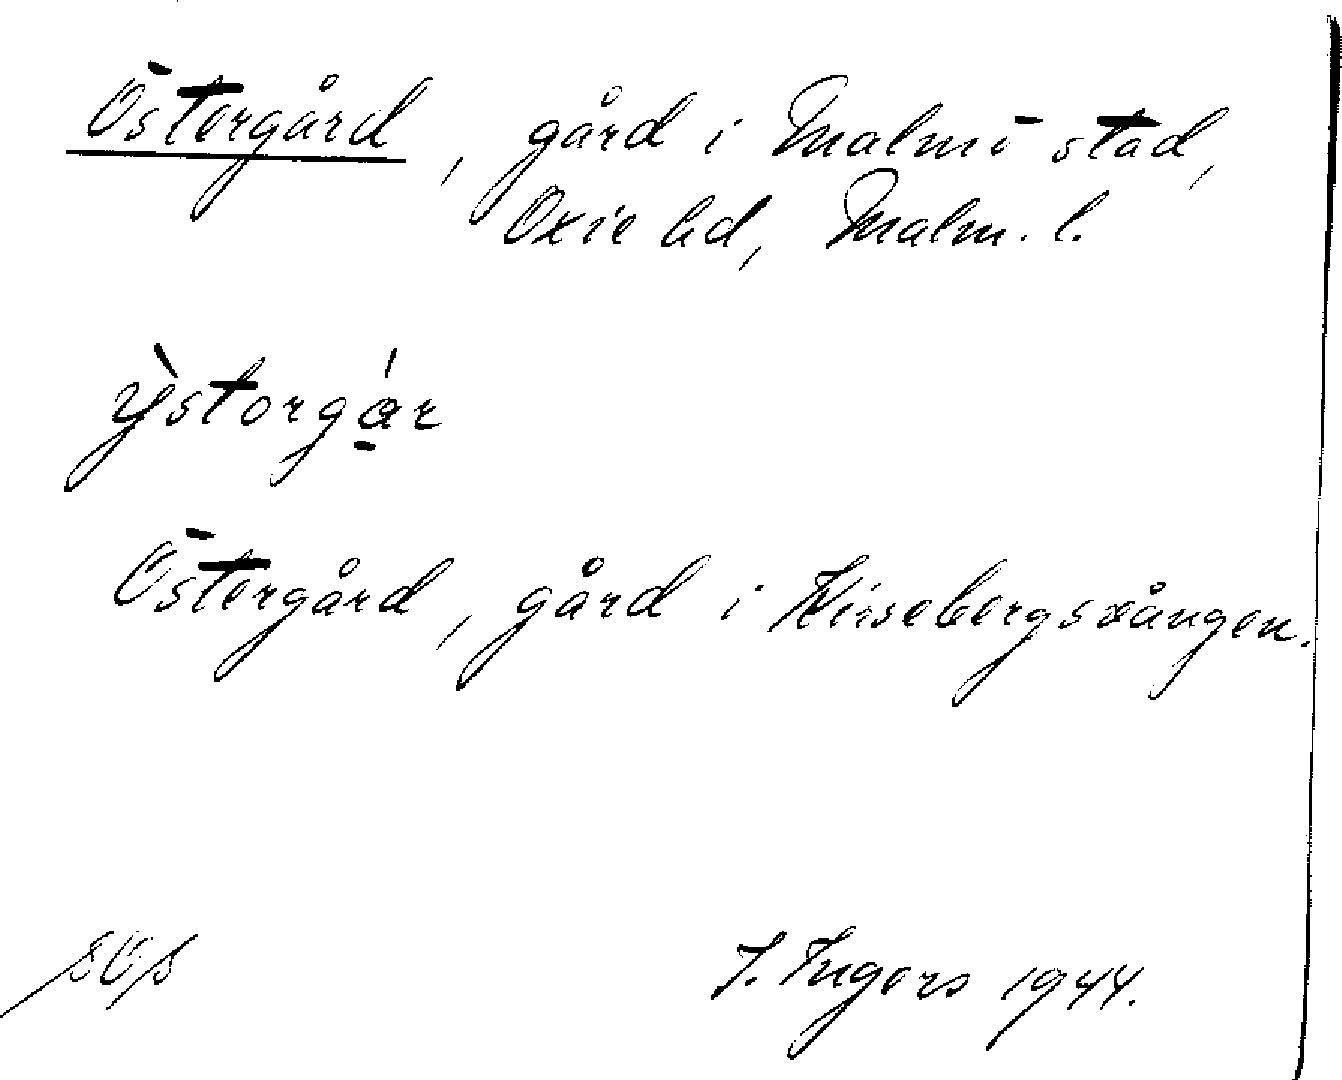 Östergård, gård i Malmö stad,
Oxie hd, Malm. l.
ỳstorgá̱r
Östergård, gård i Kirsebergsvången.
I. Ingers 1944.